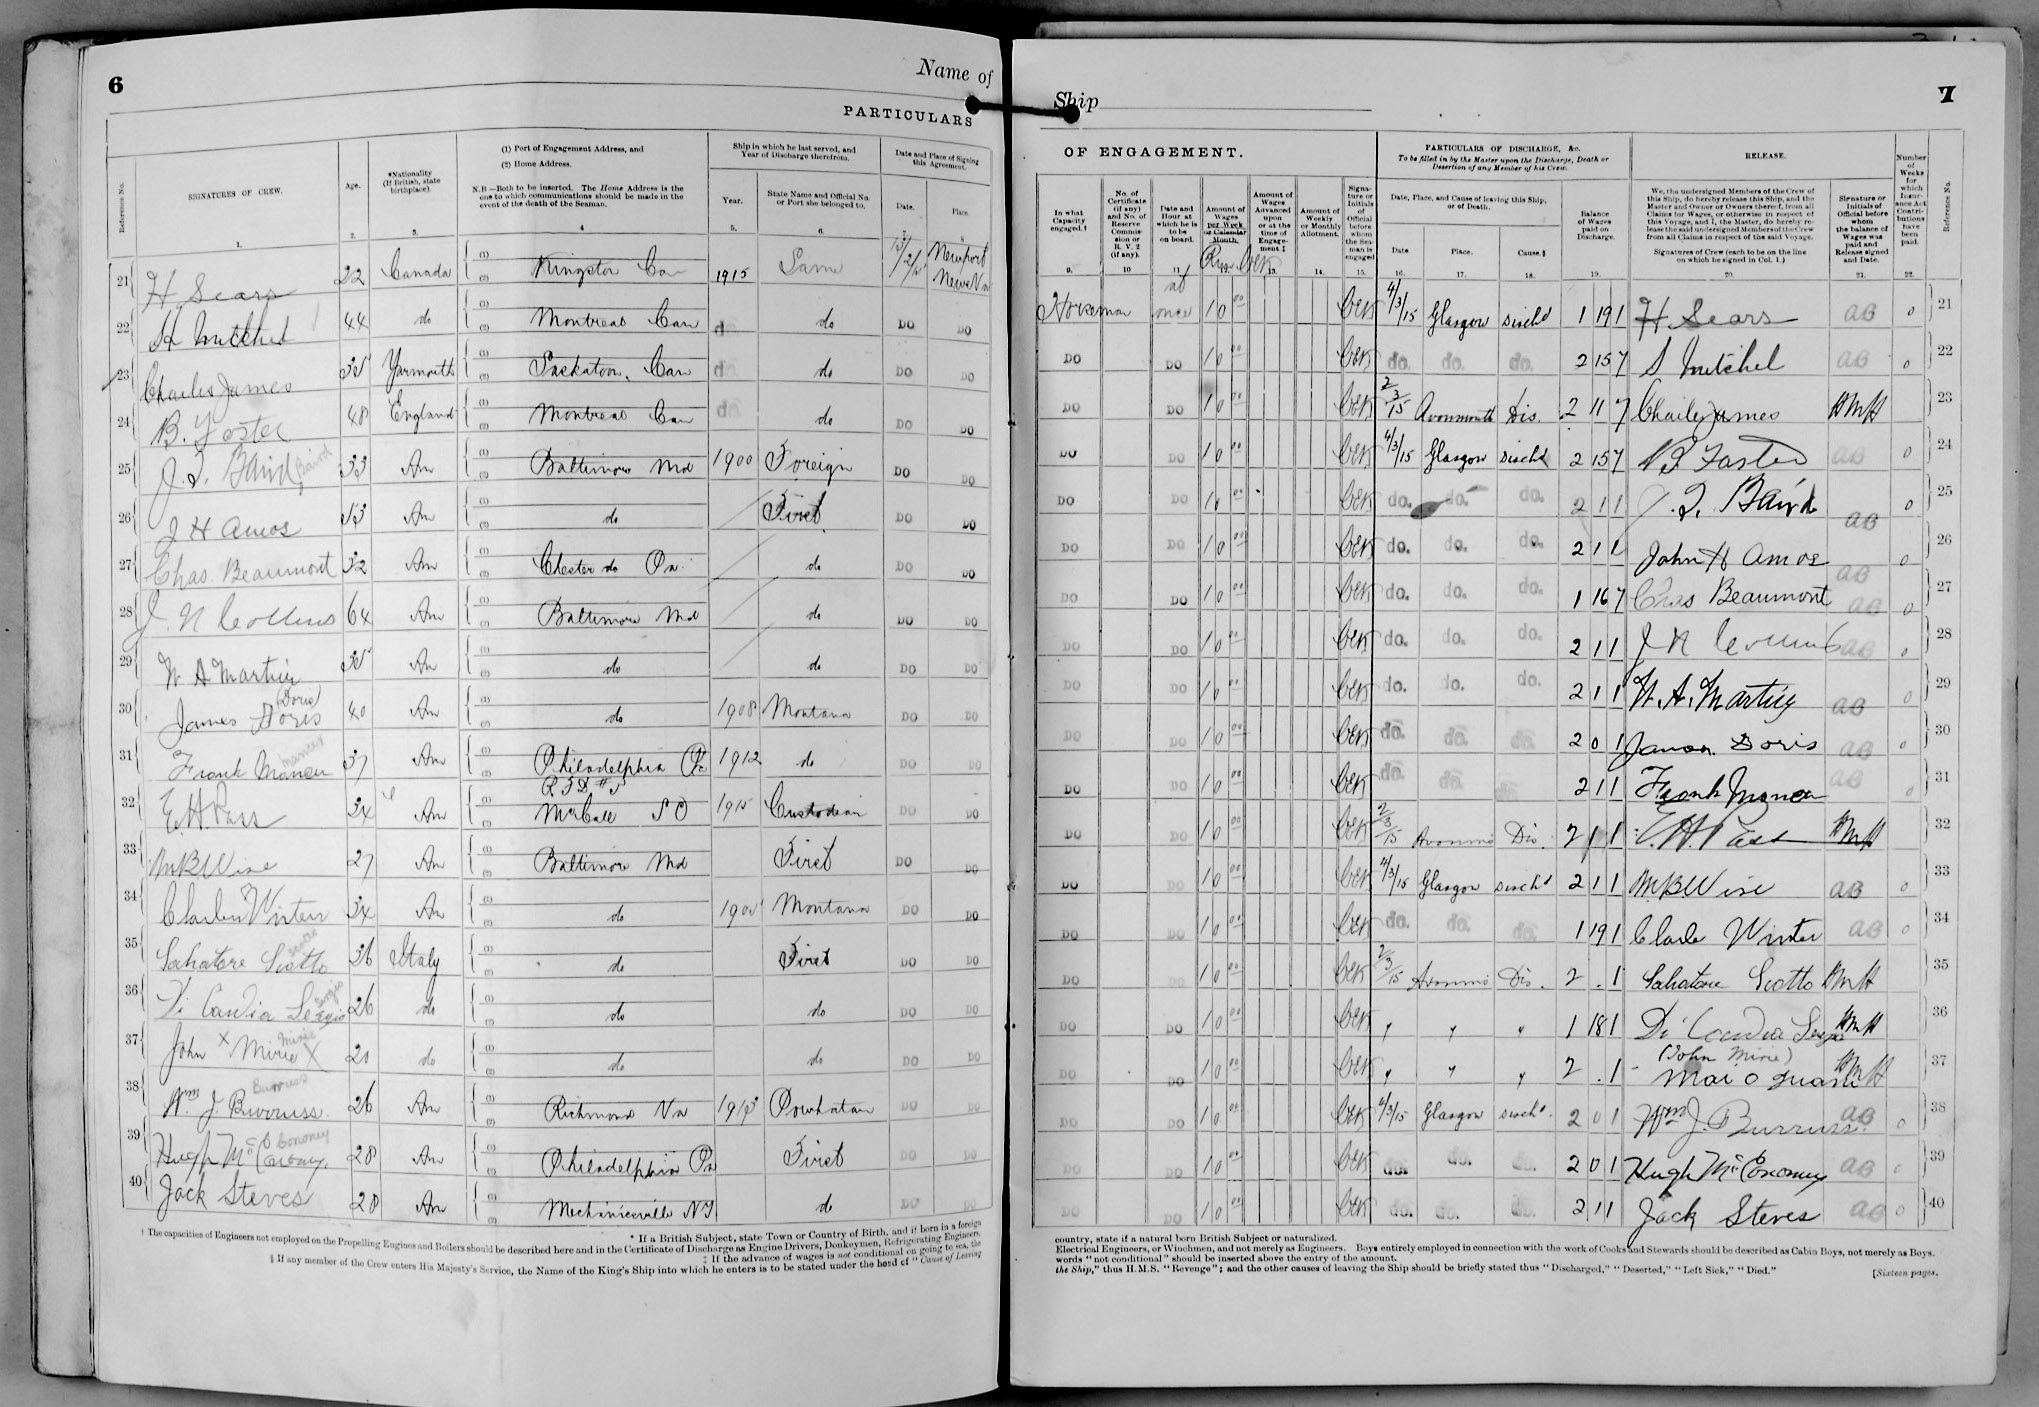 6
Name of
PARTICULARS
Reference No.
SIGNATURES OF CREW.
Age.
*Nationality (If British, state birthplace).
(1) Port of Engagement Address, and
(2) Home Address.
N.B.—Both to be inserted. The Home Address is the one to which communications should be made in the event of the death of the Seaman.
Ship in which he last served, and Year of Discharge therefrom.
Year.
State Name and Official No. or Port she belonged to.
Date and Place of Signing this Agreement.
Date.
Place.
1. 2. 3. 4 5. 6.
21 H Sears 22 Canada Kingston Can 1915 Same Newport News Va
22 Mitchel 44 do Montreal Can d do DO DO
23 Charles James 35 Yarmouth Saskatoon, Can do do DO DO
24 B. Foster 48 England Montreal Can do do DO DO
25 J. I. Baird Baird 33 Am Baltimore Md 1900 Foreign DO DO
26 J H Amos 53 Am do First DO DO
27 Chas. Beaumont 32 Am Chester do Pa. do DO DO
28 J. N Collins 64 Am Baltimore Md do DO DO
29 W A Martin 35 Am do do DO DO
30 James Doris (Doris) 40 Am do 1908 Montana DO DO
31 Frank 37 Am Philadelphia Pa 1912 do DO DO
32 E. H. Pass 34 Am R F D # 5 McCall 1915 Custodian DO DO
33 M B Wise 27 Am Baltimore Md First DO DO
34 Winters 34 Am do 1905 Montana DO DO
35 Salvatore Scotto Scotto 36 Italy do First DO DO
36 Di Candia Sergio Sergio 26 do do do DO DO
37 John X Mirie X Mirie 20 do do do DO DO
38 Wm J. Burruss Burruss 26 Am Richmond Va 1913 Powhatan DO DO
39 Hugh McConomy McConomey 28 Am Philadelphia Pa First DO DO
40 Jack Steves 28 Am Mechanicville NY do DO DO
* If a British Subject, state Town or Country of Birth, and if born in a foreign
† The capacities of Engineers not employed on the Propelling Engines and Boilers should be described here and in the Certificate of Discharge as Engine Drivers, Donkeymen, Refrigerating Engineers,
‡ If the advance of wages is not conditional on going to sea, the
§ If any member of the Crew enters His Majesty's Service, the Name of the King's Ship into which he enters is to be stated under the head of "Cause of Leaving
7
Ship
OF ENGAGEMENT.
In what Capacity engaged.†
No. of Certificate (if any) and No. of Reserve Commission or R. V. 2 (if any).
Date and Hour at which he is to be on board.
Amount of Wages per Week or Calendar Month.
Amount of Wages Advanced upon or at the time of Engagement.‡
Amount of Weekly or Monthly Allotment.
Signature or Initials of Official before whom the Seaman is engaged
PARTICULARS OF DISCHARGE, &c.
To be filled in by the Master upon the Discharge, Death or Desertion of any Member of his Crew.
Date, Place, and Cause of leaving this Ship, or of Death.
Date
Place.
Cause.§
Balance of Wages paid on Discharge.
RELEASE.
We, the undersigned Members of the Crew of this Ship, do hereby release this Ship, and the Master and Owner or Owners thereof, from all Claims for Wages, or otherwise in respect of this Voyage, and I, the Master, do hereby release the said undersigned Members of the Crew from all Claims in respect of the said Voyage.
Signatures of Crew (each to be on the line on which he signed in Col. 1.)
Signature or Initials of Official before whom the balance of Wages was paid and Release signed and Date.
Number of Weeks for which Insurance Act Contributions have been paid.
Reference No.
9. 10 11. 12. 13. 14. 15. 16. 17. 18. 19. 20. 21. 22.
Horseman at once 10 00 4/3/15 Glasgow Disch'd 1 19 1 H Sears AB 0 21
DO DO 10 00 do. do. do. 2 15 7 S Mitchel AB 0 22
DO DO 10 00 2/3/15 Avonmouth Dis. 2 11 7 Charles James HMH 23
DO DO 10 00 4/3/15 Glasgow Disch'd 2 15 7 B Foster AB 0 24
DO DO 10 00 do. do. do. 2 1 1 J. I. Baird AB 0 25
DO DO 10 00 do. do. do. 2 1 1 John H Amos AB 0 26
DO DO 10 00 do. do. do. 1 16 7 Chas Beaumont AB 0 27
DO DO 10 00 do. do. do. 2 1 1 J N Collins AB 0 28
DO DO 10 00 do. do. do. 2 1 1 W. A. Martin AB 0 29
DO DO 10 00 do. do. do. 2 0 1 James Doris AB 0 30
DO DO 10 00 do. do. do. 2 1 1 Frank AB 0 31
DO DO 10 00 2/3/15 Avonmo Dis. 2 1 1 E. H. Pass HMH 32
DO DO 10 00 4/3/15 Glasgow Disch'd 2 1 1 M B Wise AB 0 33
DO DO 10 00 do. do. do. 1 19 1 Winter AB 0 34
DO DO 10 00 2/3/15 Avonmo Dis. 2 . 1 Salvatore Scotto HMH 35
DO DO 10 00 " " " 1 18 1 Di Candia Sergio HMH 36
DO DO 10 00 " " " 2 . 1 (John Mirie) HMH 37
DO DO 10 00 4/3/15 Glasgow Disch'd. 2 0 1 Wm J. Burruss. AB 0 38
DO DO 10 00 do. do. do. 2 0 1 Hugh McConomy AB 0 39
DO DO 10 00 do. do. do. 2 1 1 Jack Steves AB 0 40
country, state if a natural born British Subject or naturalized.
Electrical Engineers, or Winchmen, and not merely as Engineers. Boys entirely employed in connection with the work of Cooks and Stewards should be described as Cabin Boys, not merely as Boys.
words "not conditional" should be inserted above the entry of the amount.
the Ship," thus H.M.S. "Revenge"; and the other causes of leaving the Ship should be briefly stated thus "Discharged," "Deserted," "Left Sick," "Died."
[Sixteen pages.